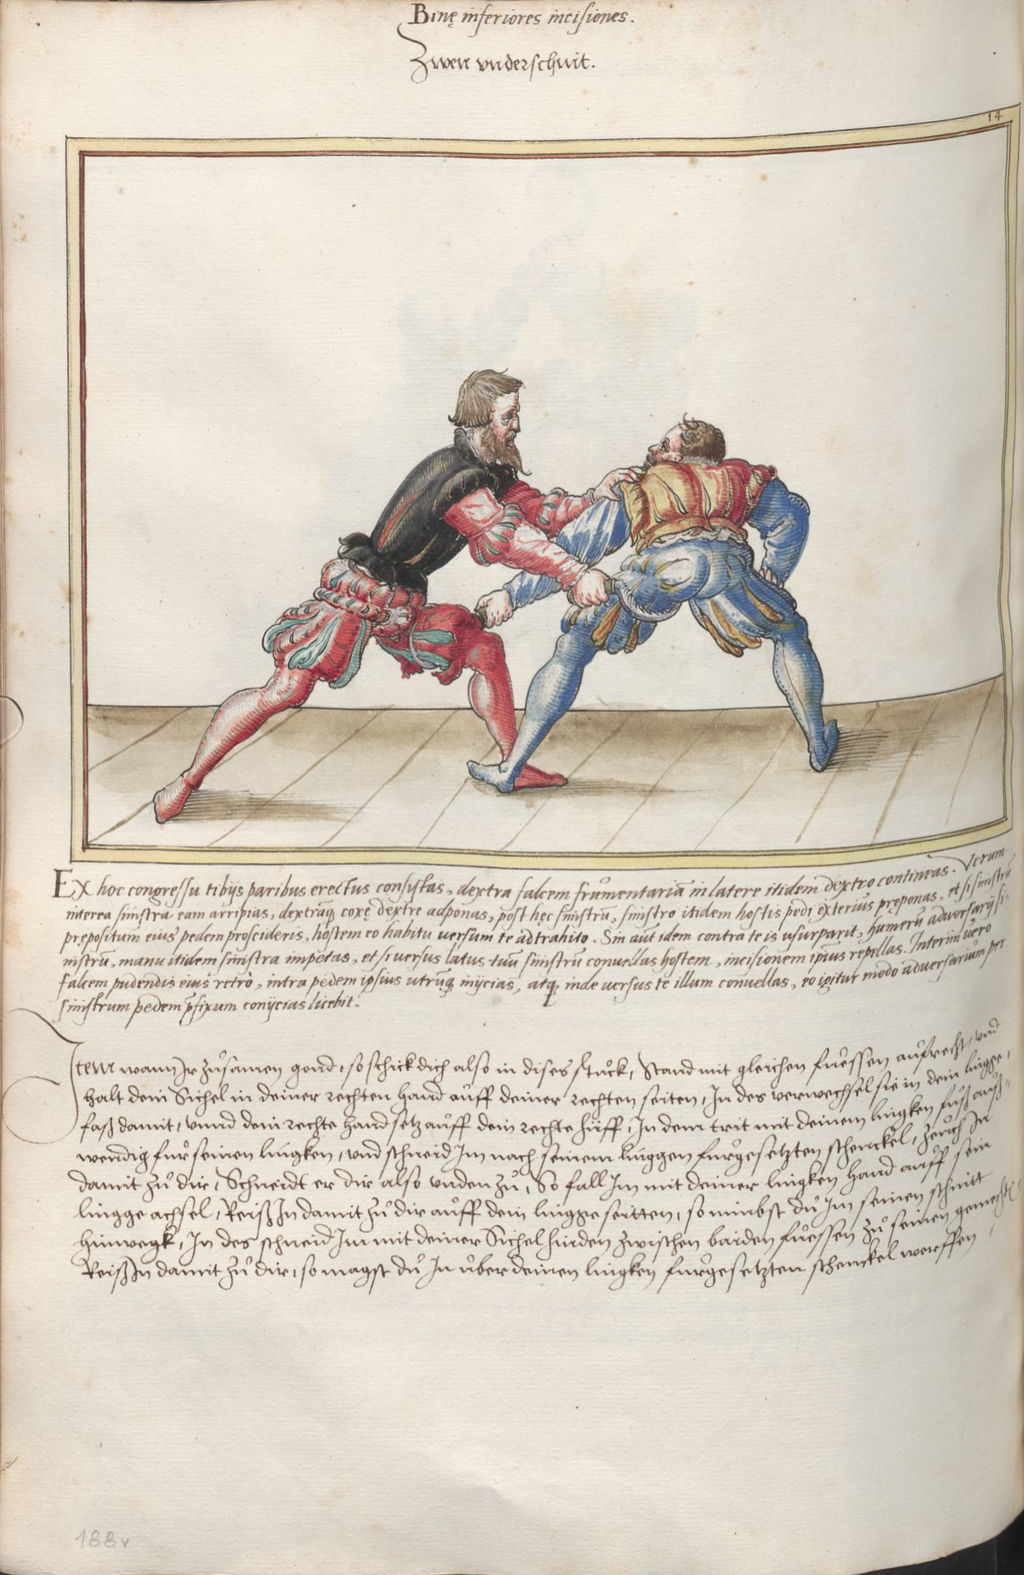 Binę inferiores incisiones.
Zwen vnderschnit.
14
Ex hoc congressu tibijs paribus erectus consistas, dextra falcem frumentariã in latere itidem dextro contineas. Verum
interea sinistra eam arripias, dextramq̃ coxę dextrę adponas, post hęc sinistrũ, sinistro itidem hostis pedi exterius pręponas, et si sinistrũ
prępositum eius pedem proscideris, hostem eo habitu versum te adtrahito. Sin aut idem contra te is usurparit, humerũ adversarij si-
nistrũ, manu itidem sinistra impetas, et si versus latus tuũ sinistrũ convellas hostem, incisionem ipsius repellas. Interim vero
falcem pudendis eius retrò, intra pedem ipsius utrũq̃ inijcias, atq̃ inde versus te illum convellas, eo igitur modo adversarium per
sinistrum pedem p̃fixum conijcias licebit.
Item wann Jr zůsamen gond, so schick dich also in dises stuck, Stand mit gleichen fuessen aufrecht, vnd
halt dein Sichel in deiner rechten hand auff deiner rechten seiten, In des verwechsel sie in dein lingge,
faß damit, vnnd dein rechte hand setz auff dein rechte hüff, In dem trit mit deinem lingken fuß auß-
wendig für seinen lingken, vnd schneid Jm nach seinem linggen fürgesetzten schenckel, Zeuch Jn
damit zů dir, Schneidt er dir also vnden zů, So fall Jm mit deiner lingken hand auff sein
lingge achsel, Reiß Jn damit zů dir auff dein lingge seitten, so nimbst du Jm seinen schnitt
hinwegk, In des schneid Jm mit deiner Sichel hinden zwischen baiden fuessen zů seinen gemecht,
Reiß Jn damit zů dir, so magst du Jn über deinen lingken fürgesetzten schenckel werffen
188v